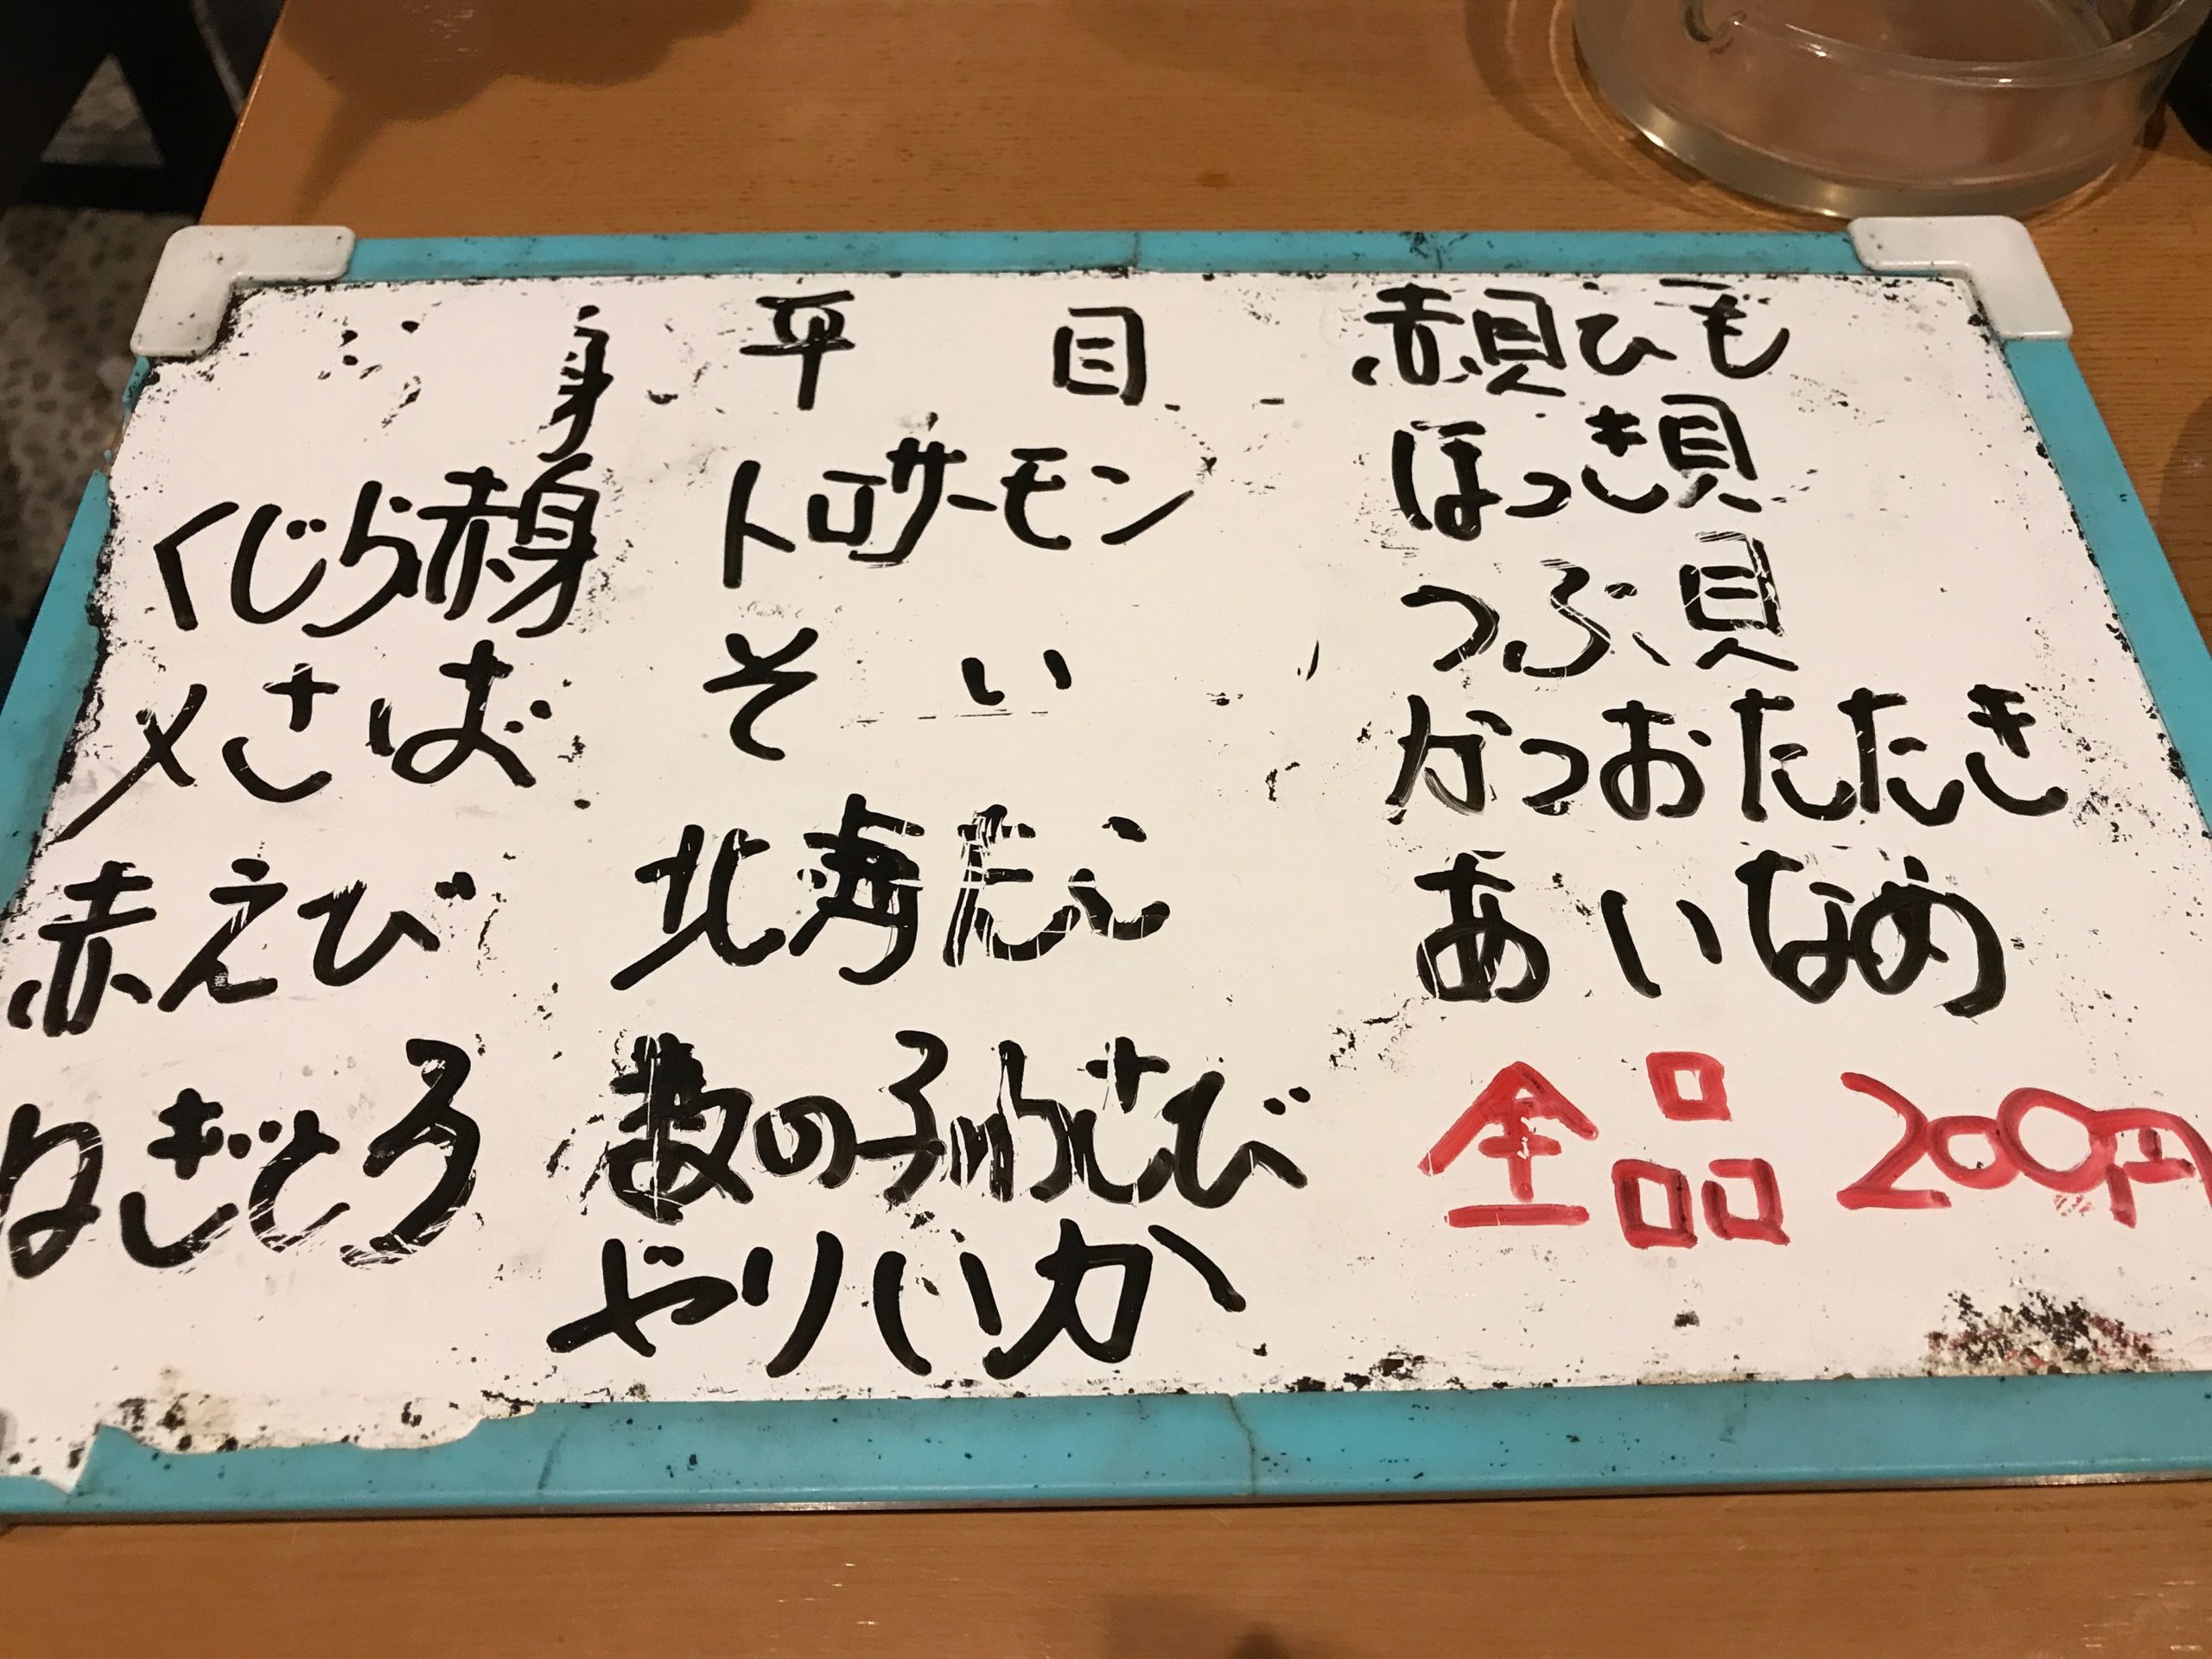 身
くじら赤身
〆さば
赤えび
ねぎとろ
平目
トロサーモン
そい
北海だこ
数の子わさび
やりいか
赤貝ひも
ほっき貝
つぶ貝
かつおたたき
あいなめ
全品200円